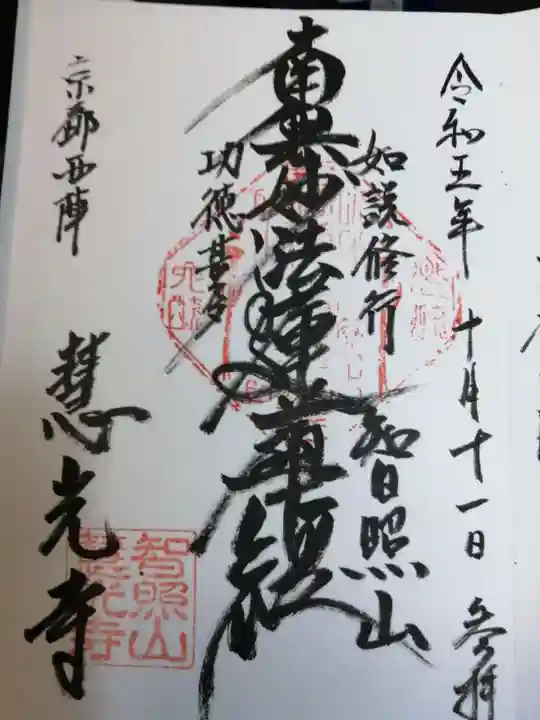 令和五年 十月十一日 参拝
如説修行 智照山
南無妙法蓮華経
功徳甚多
京都西陣 慧光寺
智照山
慧光寺